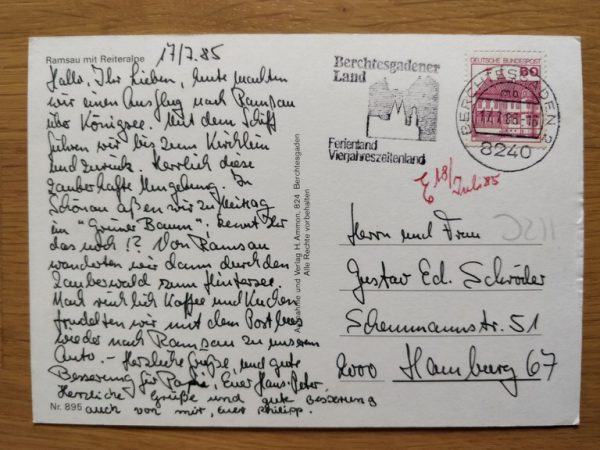 Ramsau mit Reiteralpe
17/7.85
Hallo, Ihr Lieben, heute machten
wir einen Ausflug nach Ramsau
über Königsee. Mit dem Schiff
fuhren wir bis zum Kirchlein
und zurück. Herrlich diese
zauberhafte Umgebung. In
Schönau aßen wir zu Mittag
im "Grünen Baum", kennt Ihr
das noch!? Von Ramsau
wanderten wir dann durch den
Zauberwald zum Hintersee.
Nach reichlich Kaffee und Kuchen
trudelten wir mit dem Postbus
wieder nach Ramsau zu unserem
Auto.- Herzliche Grüße, und gute
Besserung für Papa, Euer Hans-Peter.
Herzliche Grüße und gute Besserung
auch von mir, euer Philipp.
Nr. 895
Aufnahme und Verlag H. Ammon, 824 Berchtesgaden
Alle Rechte vorbehalten
Berchtesgadener
Land
Ferienland
Vierjahreszeitenland
DEUTSCHE BUNDESPOST
60
BERCHTESGADEN 2
17.7.85-16
8240
E 18/
Juli 85
Herrn und Frau
Gustav Ed. Schröder
Schemmannstr. 51
2000 Hamburg 67